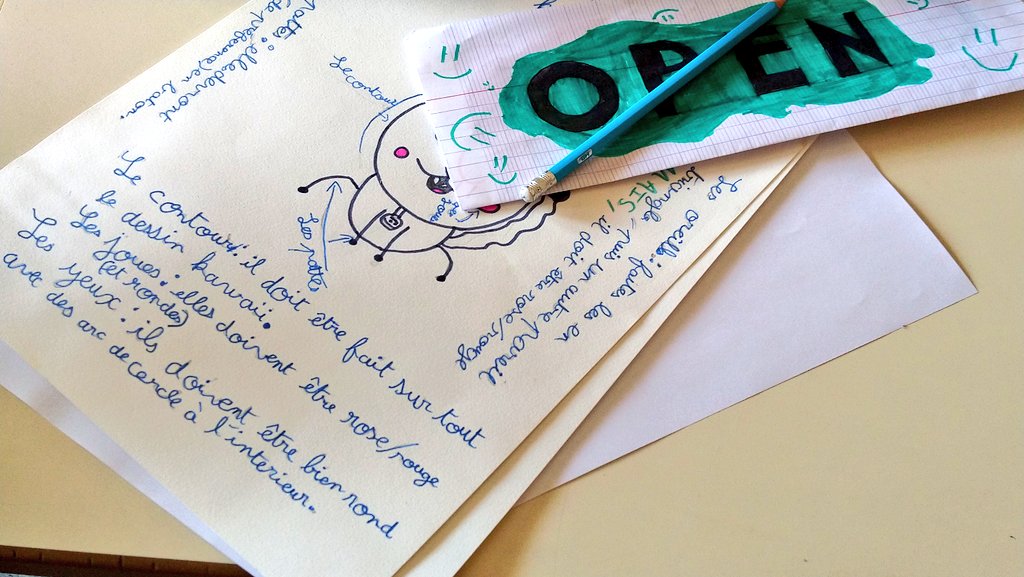 OPEN
pattes : elles devront
(de préférence) en
baton.
Le contour
Les pattes
Les
joue
Les oreilles : faites les en
triangle, puis un autre pareil
MAIS, il doit être rose/rouge
Le contour : il doit être fait sur tout
le dessin kawai.
Les joues : elles doivent être rose/rouge
(et rondes)
Les yeux : ils doivent être bien rond
avec des arc de cercle à l'interieur.